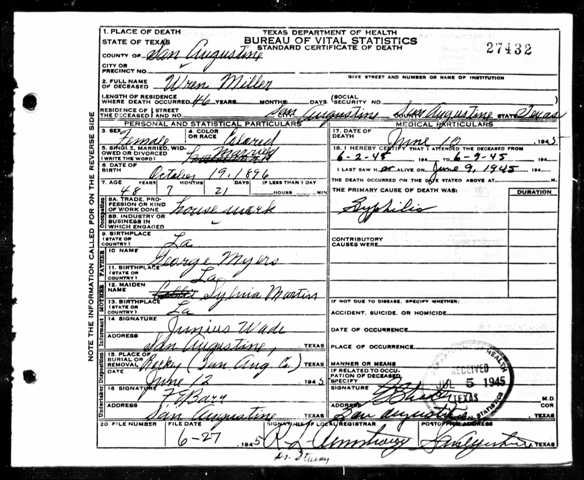 TEXAS DEPARTMENT OF HEALTH
BUREAU OF VITAL STATISTICS
STANDARD CERTIFICATE OF DEATH
27432
1. PLACE OF DEATH
STATE OF TEXAS
COUNTY OF San Augustine
CITY OR
PRECINCT NO.
GIVE STREET AND NUMBER OR NAME OF INSTITUTION
2. FULL NAME
OF DECEASED Wren Miller
LENGTH OF RESIDENCE
WHERE DEATH OCCURRED 46 YEARS MONTHS DAYS
(SOCIAL
SECURITY NO.
RESIDENCE OF (STREET
THE DECEASED (AND NO. San Augustine San Augustine STATE Texas
PERSONAL AND STATISTICAL PARTICULARS
3. SEX Female
4. COLOR OR RACE Colored
5. SINGLE, MARRIED, WIDOWED OR DIVORCED
(WRITE THE WORD) Married
6. DATE OF
BIRTH October 19, 1896
7. AGE YEARS MONTHS DAYS IF LESS THAN 1 DAY
48 7 21 HOURS MIN
8A. TRADE, PROFESSION OR KIND
OF WORK DONE house work
8B. INDUSTRY OR
BUSINESS IN
WHICH ENGAGED
9. BIRTHPLACE
(STATE OR
COUNTRY) La
FATHER
10 NAME George Myers
11. BIRTHPLACE
(STATE OR
COUNTRY) La
MOTHER
12. MAIDEN
NAME Sylvia Martin
13. BIRTHPLACE
(STATE OR
COUNTRY) La
14 SIGNATURE Junius Wade
ADDRESS San Augustine, TEXAS
15. PLACE OF
BURIAL OR
REMOVAL (San Aug Co.) TEXAS
DATE June 12 1945
16 SIGNATURE
ADDRESS San Augustine TEXAS
MEDICAL PARTICULARS
17. DATE OF
DEATH June 10 1945
18. I HEREBY CERTIFY THAT I ATTENDED THE DECEASED FROM
6-2-45 194 TO 6-9-45 194
I LAST SAW H er ALIVE ON June 9, 1945 194
THE DEATH OCCURRED ON THE DATE STATED ABOVE AT M.
THE PRIMARY CAUSE OF DEATH WAS: DURATION
Syphilis
CONTRIBUTORY
CAUSES WERE:
IF NOT DUE TO DISEASE, SPECIFY WHETHER:
ACCIDENT, SUICIDE, OR HOMICIDE
DATE OF OCCURRENCE
PLACE OF OCCURRENCE
MANNER OR MEANS
IF RELATED TO OCCUPATION OF DECEASED,
SPECIFY
SIGNATURE M.D.
ADDRESS San Augustine TEXAS
RECEIVED
JUL 5 1945
TEXAS
20 FILE NUMBER FILE DATE SIGNATURE OF LOCAL REGISTRAR POSTOFFICE ADDRESS
6-27 1945 TEXAS
NOTE THE INFORMATION CALLED FOR ON THE REVERSE SIDE